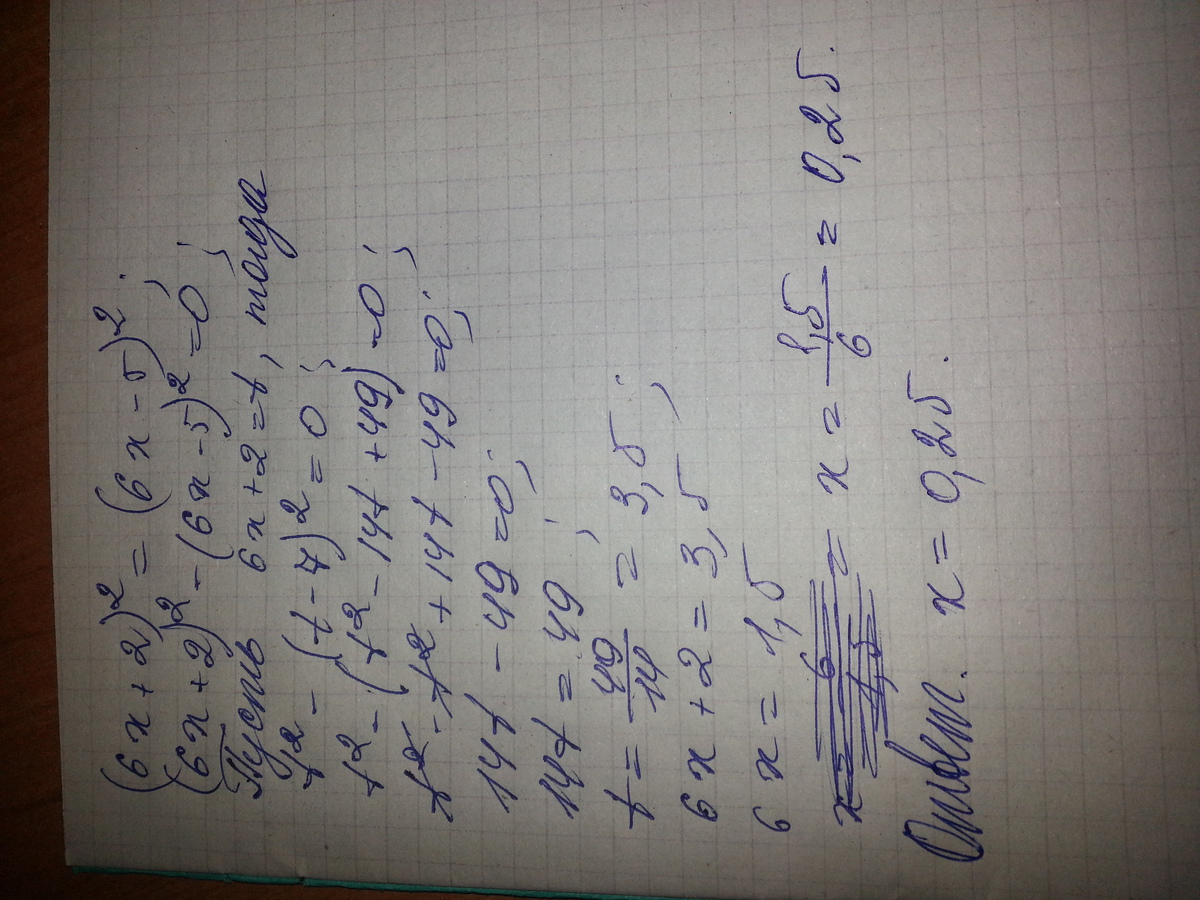 (6x+2)² = (6x-5)²;
(6x+2)² - (6x-5)² = 0;
Пусть 6x+2=t, тогда
t² - (t-7)² = 0;
t² - (t² - 14t + 49) = 0;
t² - t² + 14t - 49 = 0;
14t - 49 = 0;
14t = 49;
t = 49/14 = 3,5;
6x + 2 = 3,5;
6x = 1,5
x = 1,5/6 = 0,25.
Ответ. x = 0,25.